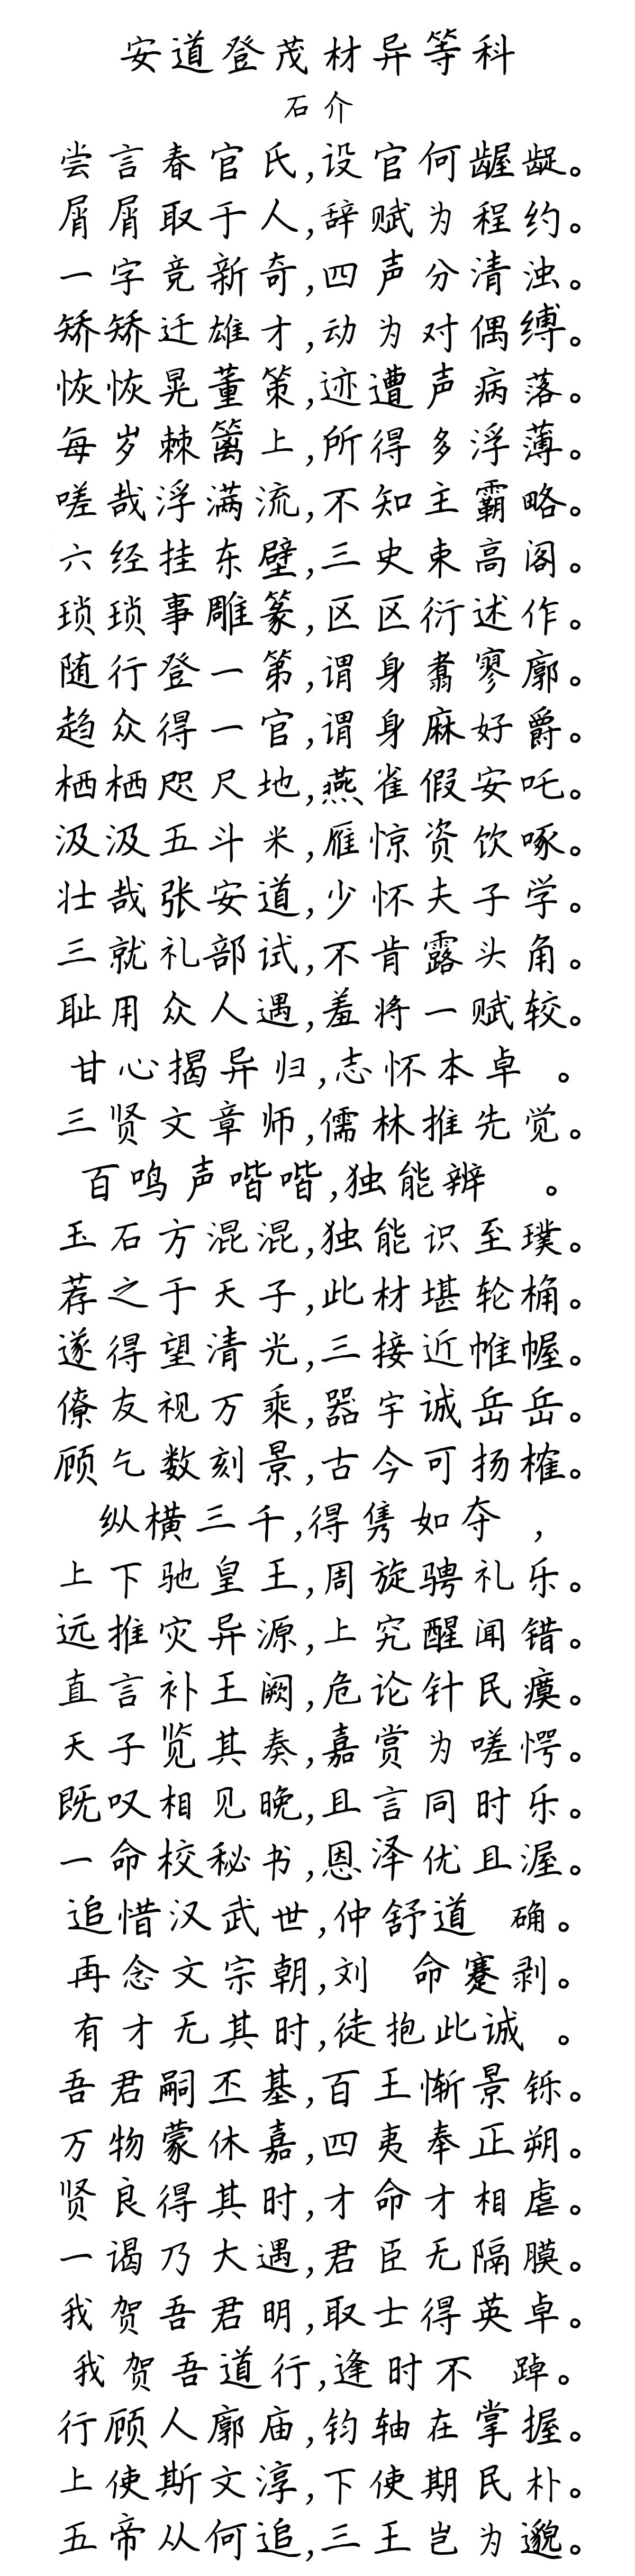 安道登茂材异等科
石介
尝言春官氏,设官何龌龊。
屑屑取于人,辞赋为程约。
一字竞新奇,四声分清浊。
矫矫迁雄才,动为对偶缚。
恢恢晃董策,迹遭声病落。
每岁棘篱上,所得多浮薄。
嗟哉浮满流,不知主霸略。
六经挂东壁,三史束高阁。
琐琐事雕篆,区区衍述作。
随行登一第,谓身翥寥廓。
趋众得一官,谓身麻好爵。
栖栖咫尺地,燕雀假安吒。
汲汲五斗米,雁惊资饮啄。
壮哉张安道,少怀夫子学。
三就礼部试,不肯露头角。
耻用众人遇,羞将一赋较。
甘心揭异归,志怀本卓 。
三贤文章师,儒林推先觉。
百鸣声喈喈,独能辨 。
玉石方混混,独能识至璞。
荐之于天子,此材堪轮桷。
遂得望清光,三接近帷幄。
僚友视万乘,器宇诚岳岳。
顾乞数刻景,古今可扬榷。
纵横三千,得隽如夺 ,
上下驰皇王,周旋骋礼乐。
远推灾异源,上究醒闻错。
直言补王阙,危论针民瘼。
天子览其奏,嘉赏为嗟愕。
既叹相见晚,且言同时乐。
一命校秘书,恩泽优且渥。
追惜汉武世,仲舒道 确。
再念文宗朝,刘 命蹇剥。
有才无其时,徒抱此诚 。
吾君嗣丕基,百王惭景铄。
万物蒙休嘉,四夷奉正朔。
贤良得其时,才命才相虐。
一谒乃大遇,君臣无隔膜。
我贺吾君明,取士得英卓。
我贺吾道行,逢时不 踔。
行顾人廓庙,钧轴在掌握。
上使斯文淳,下使期民朴。
五帝从何追,三王岂为邈。